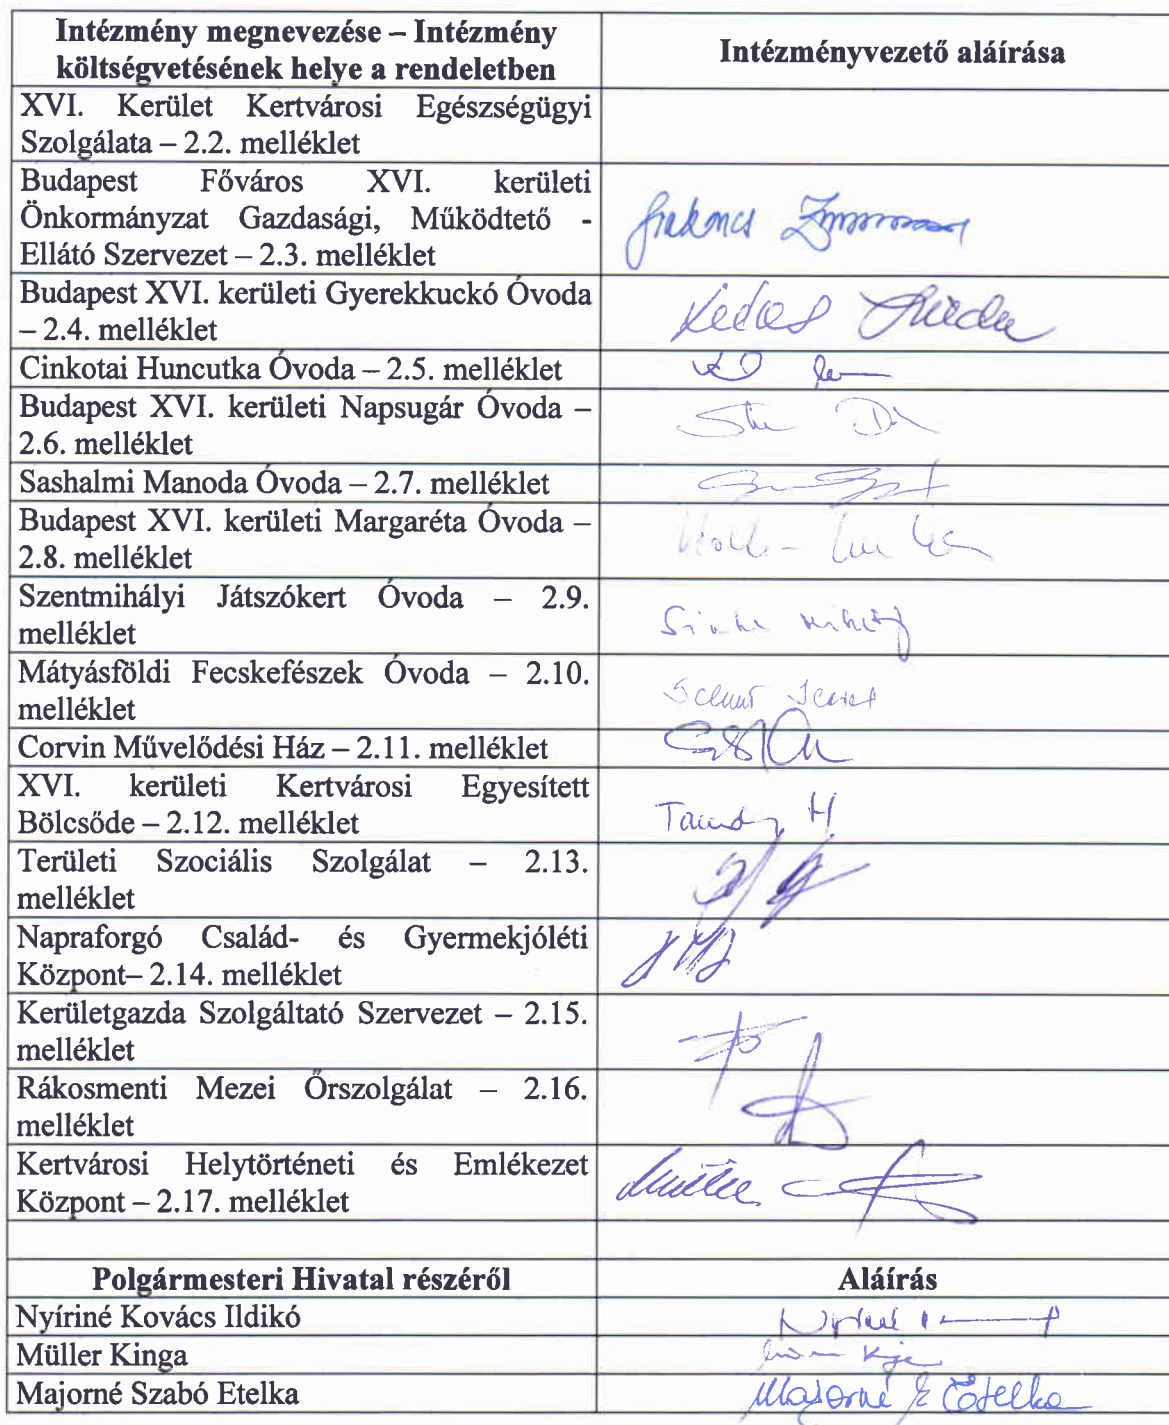 Intézmény megnevezése – Intézmény
költségvetésének helye a rendeletben
Intézményvezető aláírása
XVI. Kerület Kertvárosi Egészségügyi
Szolgálata – 2.2. melléklet
Budapest Főváros XVI. kerületi
Önkormányzat Gazdasági, Működtető -
Ellátó Szervezet – 2.3. melléklet
Budapest XVI. kerületi Gyerekkuckó Óvoda
– 2.4. melléklet
Cinkotai Huncutka Óvoda – 2.5. melléklet
Budapest XVI. kerületi Napsugár Óvoda –
2.6. melléklet
Sashalmi Manoda Óvoda – 2.7. melléklet
Budapest XVI. kerületi Margaréta Óvoda –
2.8. melléklet
Szentmihályi Játszókert Óvoda – 2.9.
melléklet
Mátyásföldi Fecskefészek Óvoda – 2.10.
melléklet
Corvin Művelődési Ház – 2.11. melléklet
XVI. kerületi Kertvárosi Egyesített
Bölcsőde – 2.12. melléklet
Területi Szociális Szolgálat – 2.13.
melléklet
Napraforgó Család- és Gyermekjóléti
Központ– 2.14. melléklet
Kerületgazda Szolgáltató Szervezet – 2.15.
melléklet
Rákosmenti Mezei Őrszolgálat – 2.16.
melléklet
Kertvárosi Helytörténeti és Emlékezet
Központ – 2.17. melléklet
Polgármesteri Hivatal részéről
Aláírás
Nyíriné Kovács Ildikó
Müller Kinga
Majorné Szabó Etelka
Majorné Etelka